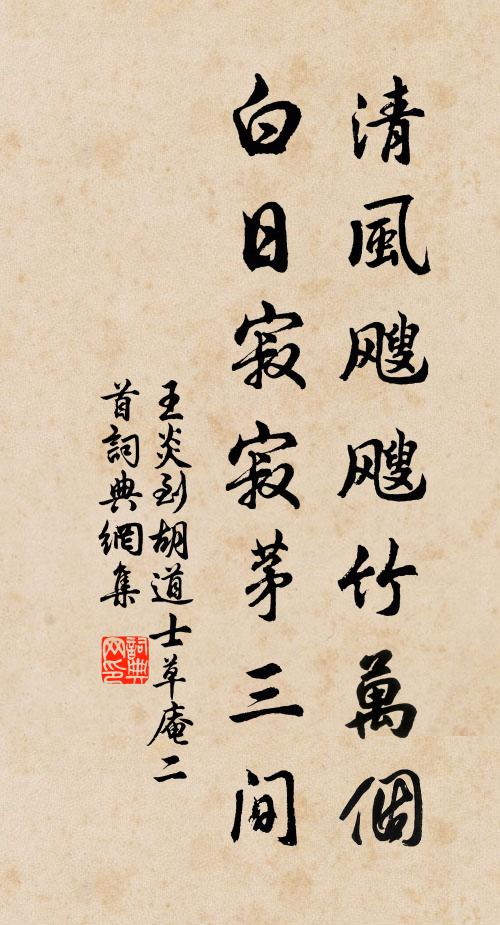 清風飕飕竹萬個
白日寂寂茅三间
王炎到胡道士草庵二
首詞典網集
詞典网印